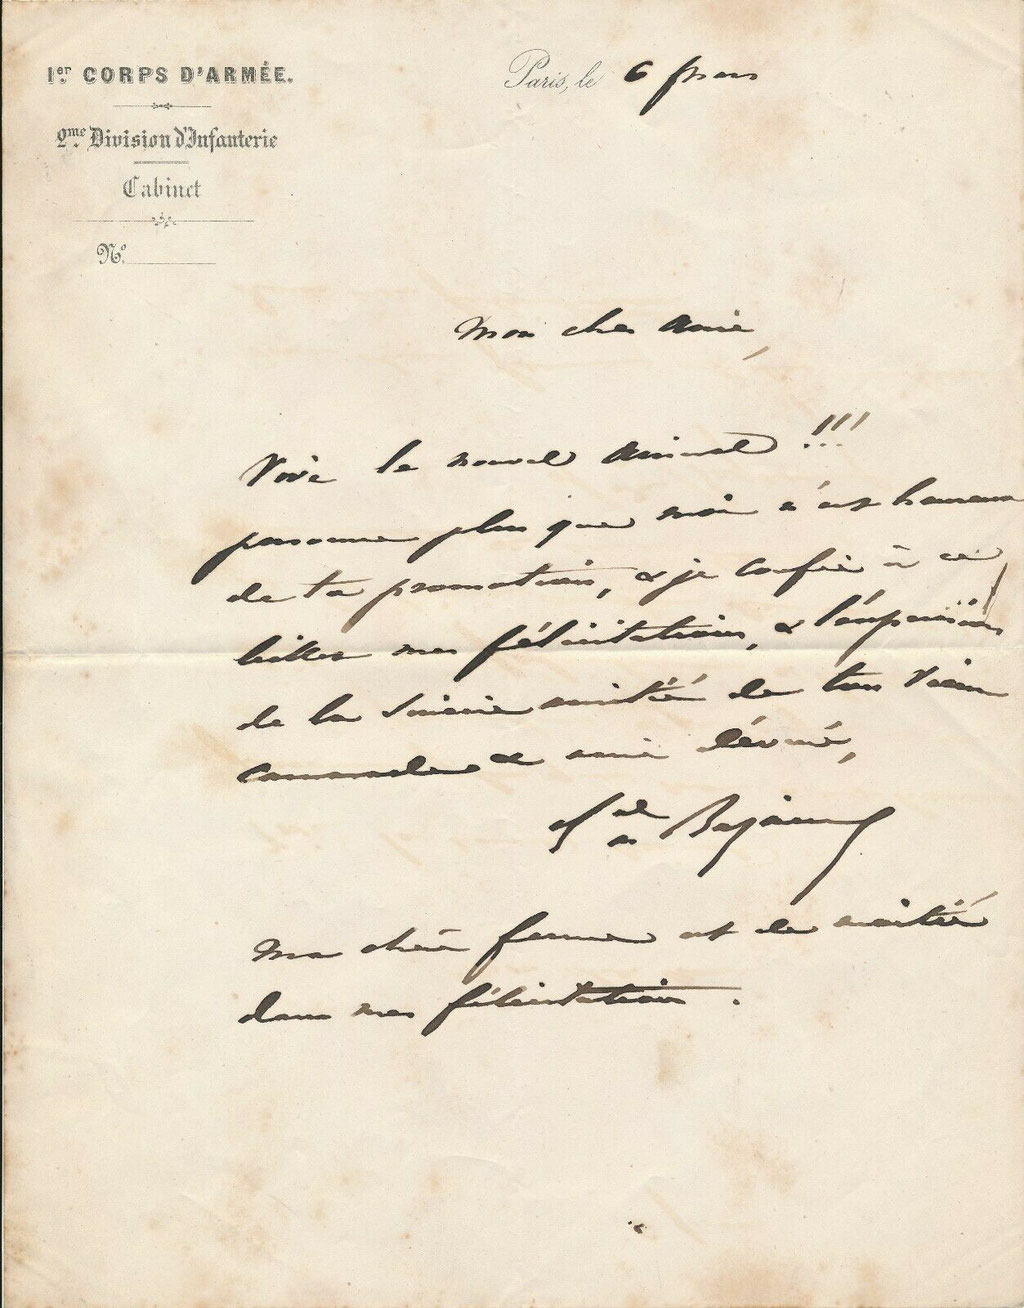 1er CORPS D'ARMÉE.
2me Division d'Infanterie
Cabinet
No.
Paris, le 6 mars
Mon cher ami,
Vive le nouvel amiral !!!
personne plus que moi n'est heureux
de ta promotion, & je confie à ce
billet mes félicitations, & l'expression
de la sincère amitié de ton vieux
camarade & ami dévoué,
Gal
Ma chère femme est de moitié
dans mes félicitations.